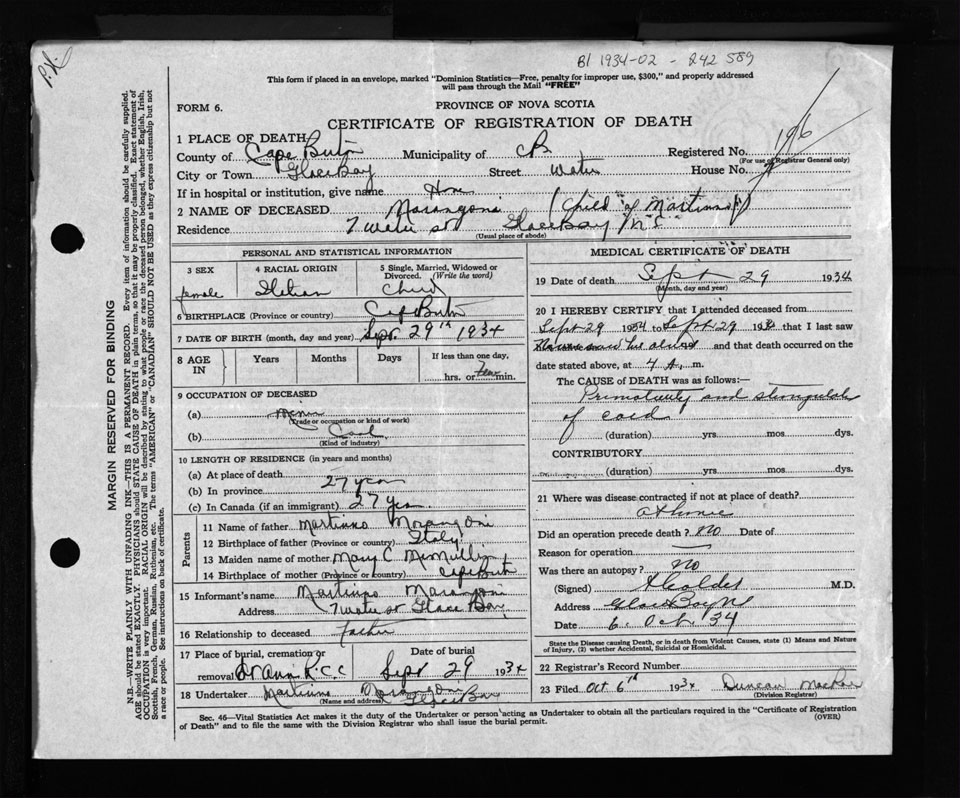 P.K.
B1 1934-02 - 242 589
This form if placed in an envelope, marked "Dominion Statistics—Free, penalty for improper use, $300," and properly addressed
will pass through the Mail "FREE"
FORM 6.
PROVINCE OF NOVA SCOTIA
CERTIFICATE OF REGISTRATION OF DEATH
1 PLACE OF DEATH
County of Cape Breton Municipality of CB Registered No. 196
(For use of Registrar General only)
City or Town Glace Bay Street Water House No. 7
If in hospital or institution, give name Home
2 NAME OF DECEASED Marangoni (Child of Martinno)
Residence 7 Water St Glace Bay N.S.
(Usual place of abode)
PERSONAL AND STATISTICAL INFORMATION
3 SEX 4 RACIAL ORIGIN 5 Single, Married, Widowed or
Divorced. (Write the word)
female Italian Child
6 BIRTHPLACE (Province or country) Cape Breton
7 DATE OF BIRTH (month, day and year) Sept. 29th 1934
8 AGE IN Years Months Days If less than one day,
hrs. or Few min.
9 OCCUPATION OF DECEASED
(a) Miner
(Trade or occupation or kind of work)
(b) Coal
(Kind of industry)
10 LENGTH OF RESIDENCE (in years and months)
(a) At place of death
(b) In province 27 years
(c) In Canada (if an immigrant) 27 years
Parents
11 Name of father Martinno Marangoni
12 Birthplace of father (Province or country) Italy
13 Maiden name of mother Mary C McMullin
14 Birthplace of mother (Province or country) Cape Breton
15 Informant's name Martinno Marangoni
Address 7 Water St Glace Bay
16 Relationship to deceased father
17 Place of burial, cremation or Date of burial
removal St Ann R.C.C. Sept 29 1934
18 Undertaker Martinno Marangoni
(Name and address) Glace Bay
MEDICAL CERTIFICATE OF DEATH
19 Date of death Sept 29 1934
(Month, day and year)
20 I HEREBY CERTIFY that I attended deceased from
Sept 29 1934 to Sept 29 1934 that I last saw
and that death occurred on the
date stated above, at 4 A. m.
The CAUSE OF DEATH was as follows:—
Prematurity and
of cord
(duration) yrs mos dys.
CONTRIBUTORY
(duration) yrs mos dys.
21 Where was disease contracted if not at place of death?
at home
Did an operation precede death? No Date of
Reason for operation
Was there an autopsy? No
(Signed) M.D.
Address Glace Bay NS
Date 6. Oct. 34
State the Disease causing Death, or in death from Violent Causes, state (1) Means and Nature
of Injury, (2) whether Accidental, Suicidal or Homicidal.
22 Registrar's Record Number
23 Filed Oct 6th 1934 Duncan MacRae
(Division Registrar)
Sec. 46—Vital Statistics Act makes it the duty of the Undertaker or person acting as Undertaker to obtain all the particulars required in the "Certificate of Registration
of Death" and to file the same with the Division Registrar who shall issue the burial permit. (OVER)
MARGIN RESERVED FOR BINDING
N.B.—WRITE PLAINLY WITH UNFADING INK—THIS IS A PERMANENT RECORD. Every item of information should be carefully supplied.
AGE should be stated EXACTLY. PHYSICIANS should STATE CAUSE OF DEATH in plain terms, so that it may be properly classified. Exact statement of
OCCUPATION is very important. RACIAL ORIGIN will be described by stating to what people or race the deceased person belonged, whether English, Irish,
Scottish, French, German, Russian, Ruthenian, etc. The terms "AMERICAN" or "CANADIAN" SHOULD NOT BE USED as they express citizenship but not
a race or people. See instructions on back of certificate.